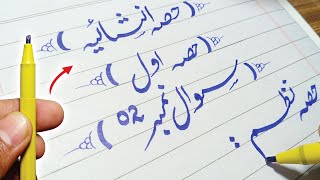 (حصہ انشائیہ)
(حصہ اول)
(سوال نمبر 02)
حصہ نظم: